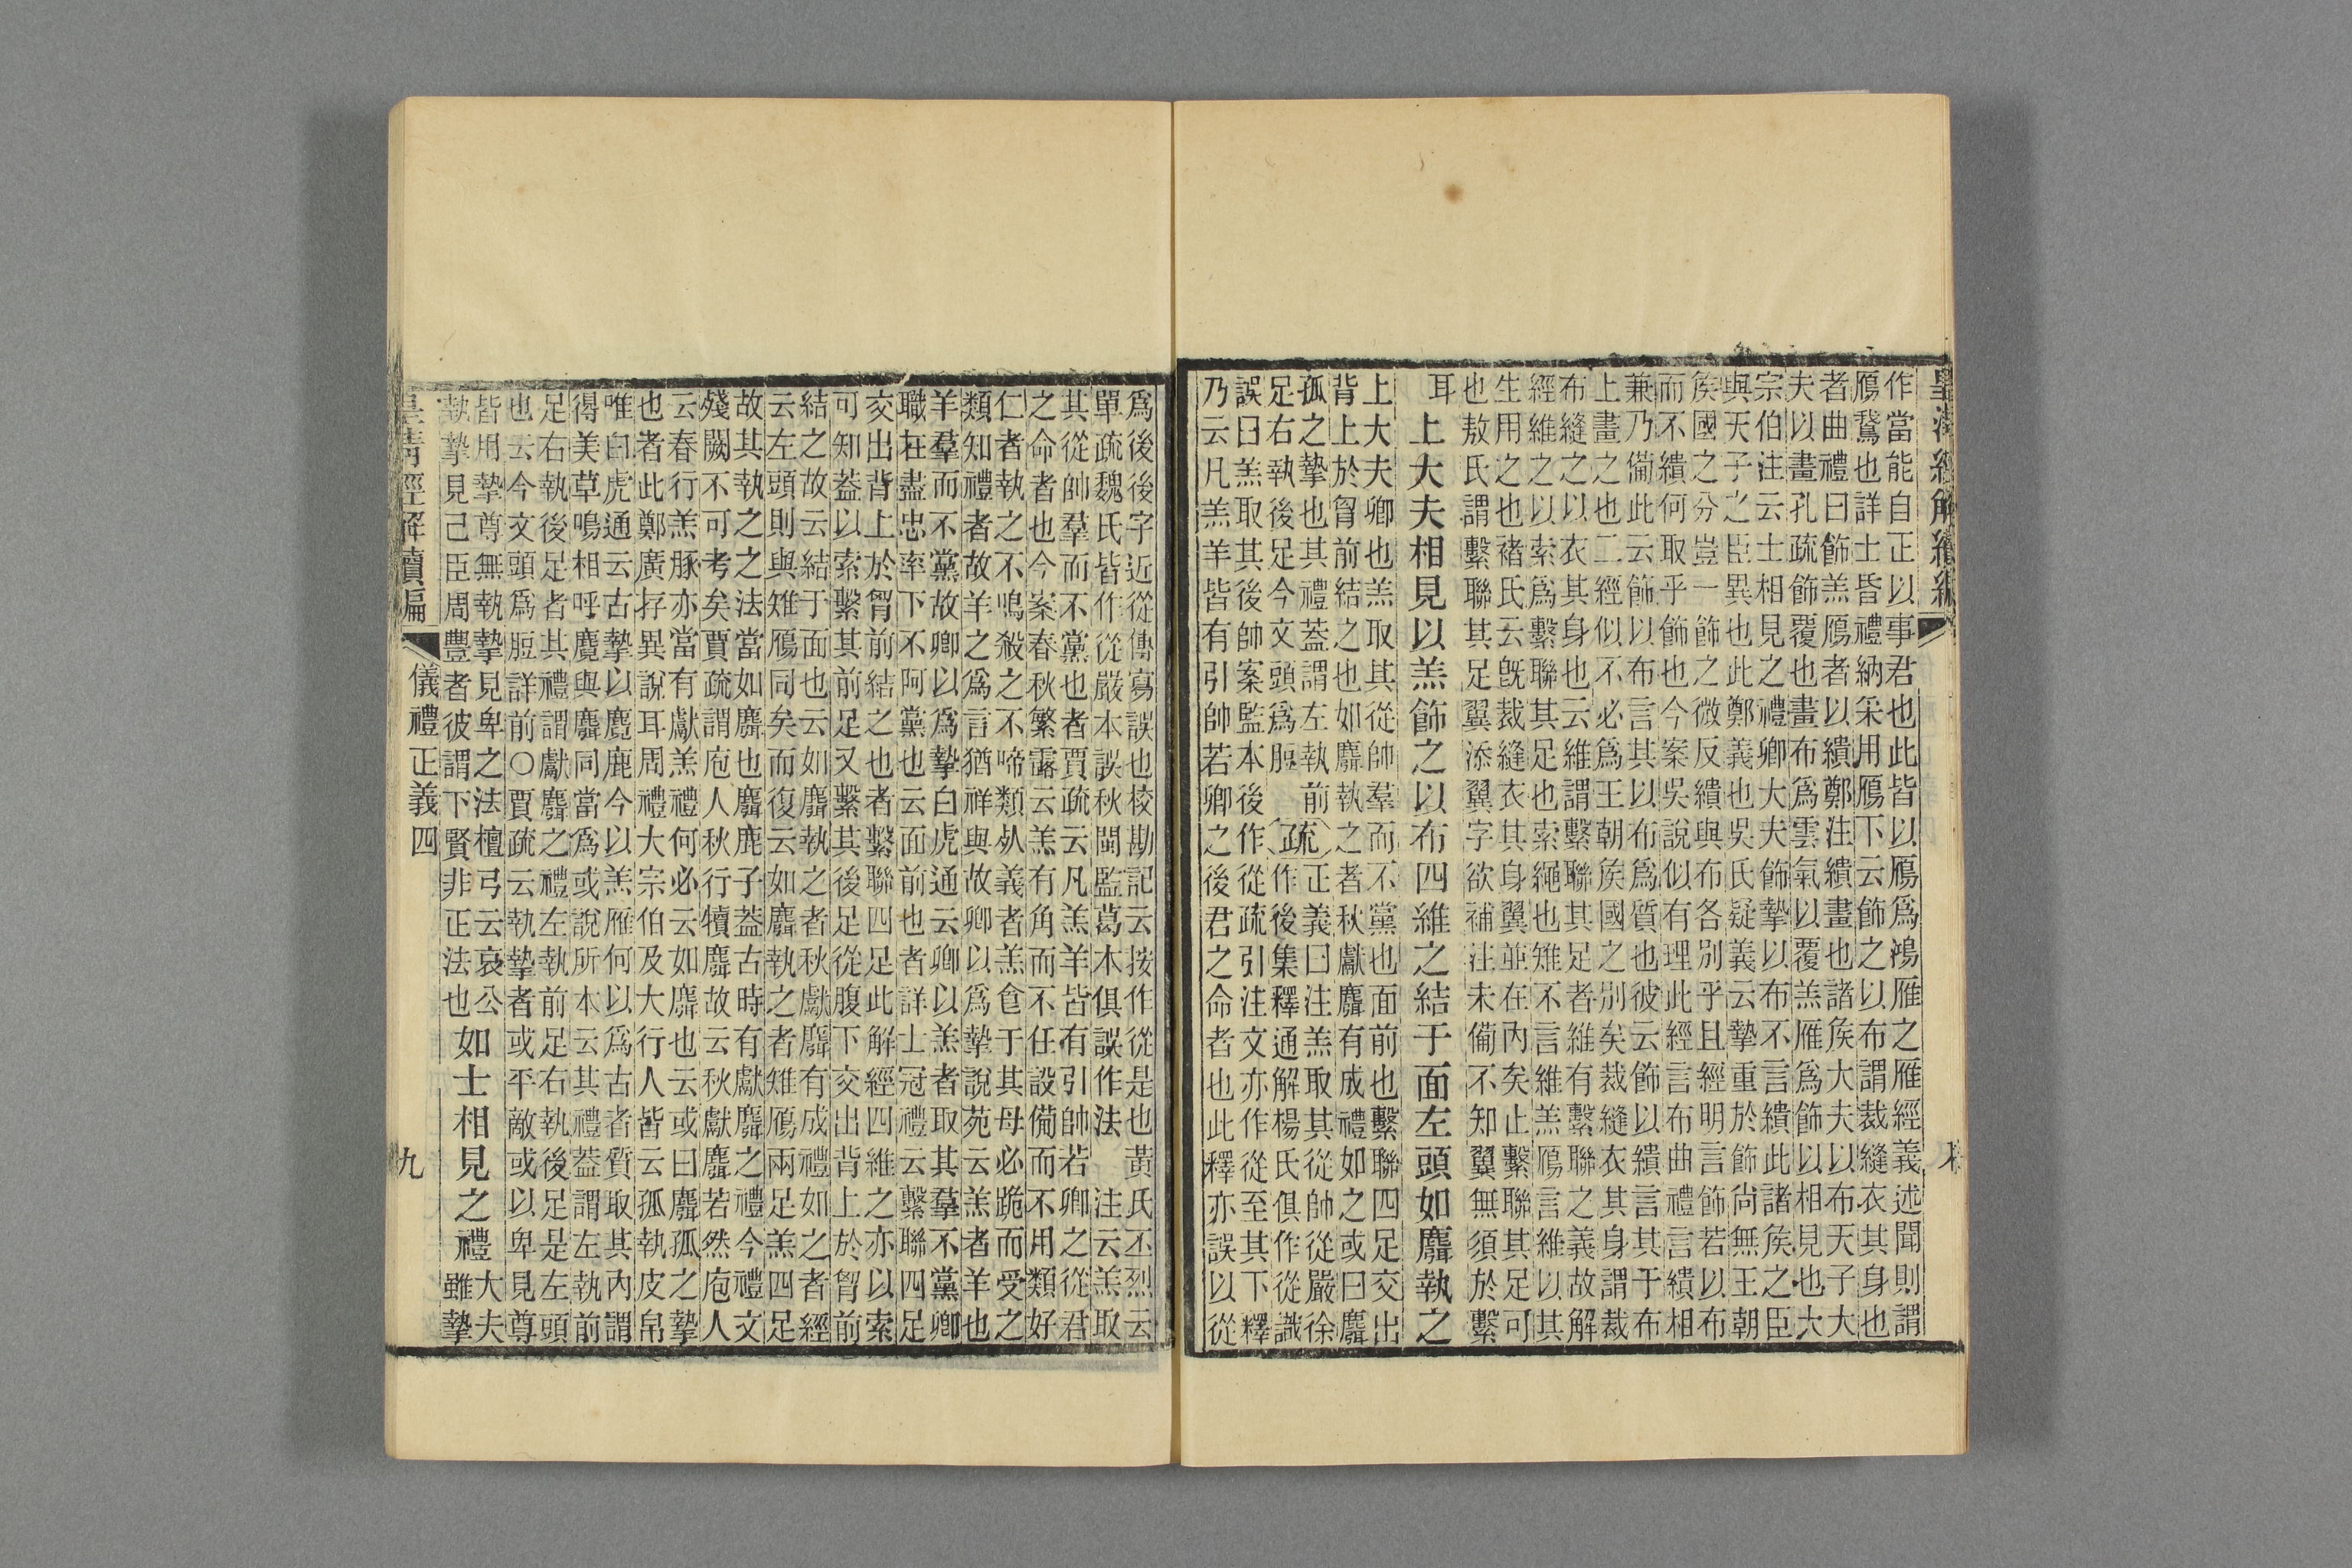 皇清經解續編
作當能自正以事君也此皆以鴈爲鴻雁之雁經義述聞則謂
鴈鵞也詳士昏禮納采用鴈下云飾之以布謂裁縫衣其身也
者曲禮曰飾羔鴈者以繢鄭注繢畫也諸矦大夫以布天子大
夫以畫孔疏飾覆也畫布爲雲氣以覆羔雁爲飾以相見也大
宗伯注云士相見之禮卿大夫飾摯以布不言繢此諸矦之臣
與天子之臣異也此鄭義也吳氏疑義云摯重於飾尙無王朝
矦國之分豈一飾之微反繢與布各別乎且經明言飾若以布
而不繢何取乎飾也今案吳說似有理此經言布曲禮言繢相
兼乃備此云飾以布言其以布爲質也彼云飾以繢言其于布
上畫之也二經似不必爲王朝矦國之別矣裁縫衣其身謂裁
布縫之以衣其身也云維謂繫聯其足者維有繫聯之義故解
經維之以索爲繫聯其足也索繩也雉不言維羔鴈言維以其
生用之也褚氏云旣裁縫衣其身翼並在內矣止繫聯其足可
也敖氏謂繫聯其足翼添翼字欲補注未備不知翼無須於繫
耳
上大夫相見以羔飾之以布四維之結于面左頭如麛執之
上大夫卿也羔取其從帥羣而不黨也面前也繫聯四足交出
背上於胷前結之也如麛執之者秋獻麛有成禮如之或曰麛
孤之摯也其禮蓋謂左執前
足右執後足今文頭爲脰疏正義曰注羔取其從帥從嚴徐
作後集釋通解楊氏俱作從識
誤曰羔取其後帥案監本後作從疏引注文亦作從至其下釋
乃云凡羔羊皆有引帥若卿之後君之命者也此釋亦誤以從
爲後後字近從傳寫誤也校勘記云按作從是也黃氏丕烈云
單疏魏氏皆作從嚴本誤秋閩監葛木俱誤作法 注云羔取
其從帥羣而不黨也者賈疏云凡羔羊皆有引帥若卿之從君
之命者也今案春秋繁露云羔有角而不任設備而不用類好
仁者執之不鳴殺之不啼類死義者羔飠于其母必跪而受之
類知禮者故羊之爲言猶祥與故卿以爲摯說苑云羔者羊也
羊羣而不黨故卿以爲摯白虎通云卿以羔者取其羣不黨卿
職在盡忠率下不阿黨也云面前也者詳士冠禮云繫聯四足
交出背上於胷前結之也者繫聯四足此解經四維之亦以索
可知葢以索繫其前足又繫其後足從腹下交出背上於胷前
結之故云結于面也云如麛執之者秋獻麛有成禮如之者經
云左頭則與雉鴈同矣而復云如麛執之者雉鴈兩足羔四足
故其執之之法當如麛也麛鹿子蓋古時有獻麛之禮今禮文
殘闕不可考矣賈疏謂庖人秋行犢麛故云秋獻麛若然庖人
云春行羔豚亦當有獻羔禮何必云如麛也云或曰麛孤之摯
也者此鄭廣存異說耳周禮大宗伯及大行人皆云孤執皮帛
唯白虎通云古摯以麑鹿今以羔雁何以爲古者質取其內謂
得美草鳴相呼麑與麛同當爲或說所本云其禮葢謂左執前
足右執後足者其禮謂獻麛之禮左執前足右執後足是左頭
也云今文頭爲脰詳前○賈疏云執摯者或平敵或以卑見尊
皆用摯尊無執摯見卑之法檀弓云哀公
執摯見己臣周豐者彼謂下賢非正法也
如士相見之禮
大夫
雖摯
皇清經解續編
儀禮正義四
九